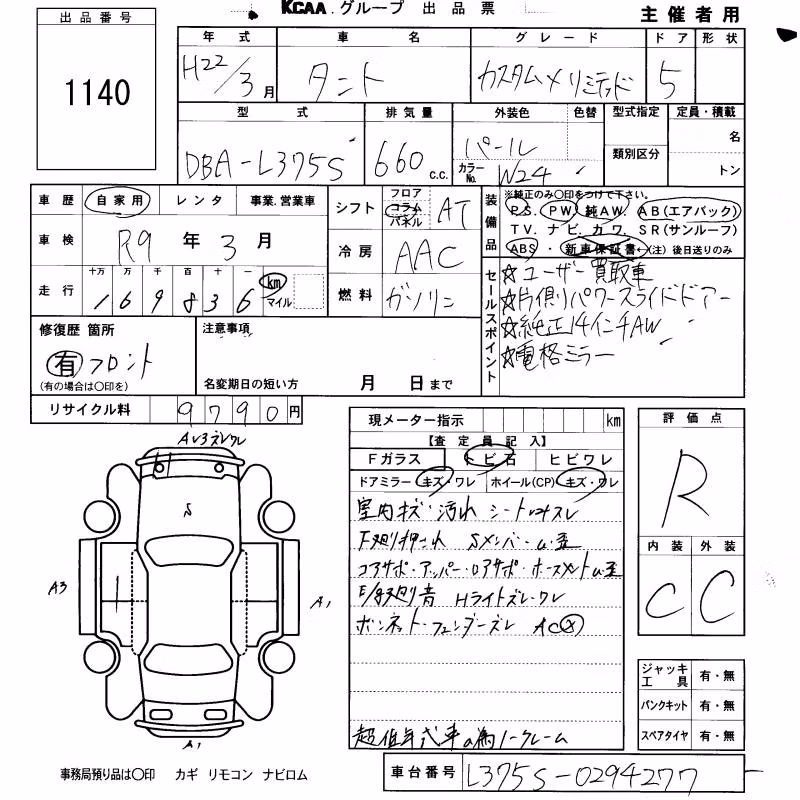 KCAA.グループ 出品票
主催者用
出品番号
1140
年式 車名 グレード ドア 形状
H22/3月 タント カスタムXリミテッド 5
型式 排気量 外装色 色替 型式指定 定員・積載
DBA-L375S 660c.c. パール 名
カラーNo. W24 類別区分 トン
車歴 自家用 レンタ 事業・営業車
シフト フロア コラム パネル AT
車検 R9年3月
冷房 AAC
走行 十万 万 千 百 十 一
169836 km マイル
燃料 ガソリン
装備品
※純正のみ〇印をつけて下さい。
P.S. PW 純AW. AB(エアバック)
TV. ナビ. カワ. SR(サンルーフ)
ABS・新車保証書←(注)後日送りのみ
セールスポイント
☆ユーザー買取車
☆片側パワースライドドアー
☆純正14インチAW
☆電格ミラー
修復歴 箇所
有 フロント
(有の場合は〇印を)
注意事項
名変期日の短い方 月 日まで
リサイクル料 9790円
現メーター指示 km
【査定員記入】
Fガラス トビ石 ヒビワレ
ドアミラー キズ・ワレ ホイール(CP) キズ・ワレ
室内キズ・汚れ シート
F廻り押され Sメンバー
コアサポ・アッパー・ロアサポ・
音 Hライトズレ・ワレ
ボンネット・フェンダーズレ AC
超低年式車の為ノークレーム
評価点
R
内装 外装
C C
ジャッキ工具 有・無
パンクキット 有・無
スペアタイヤ 有・無
S
A3
A1
A1
事務局預り品は〇印 カギ リモコン ナビロム
車台番号 L375S-0294277